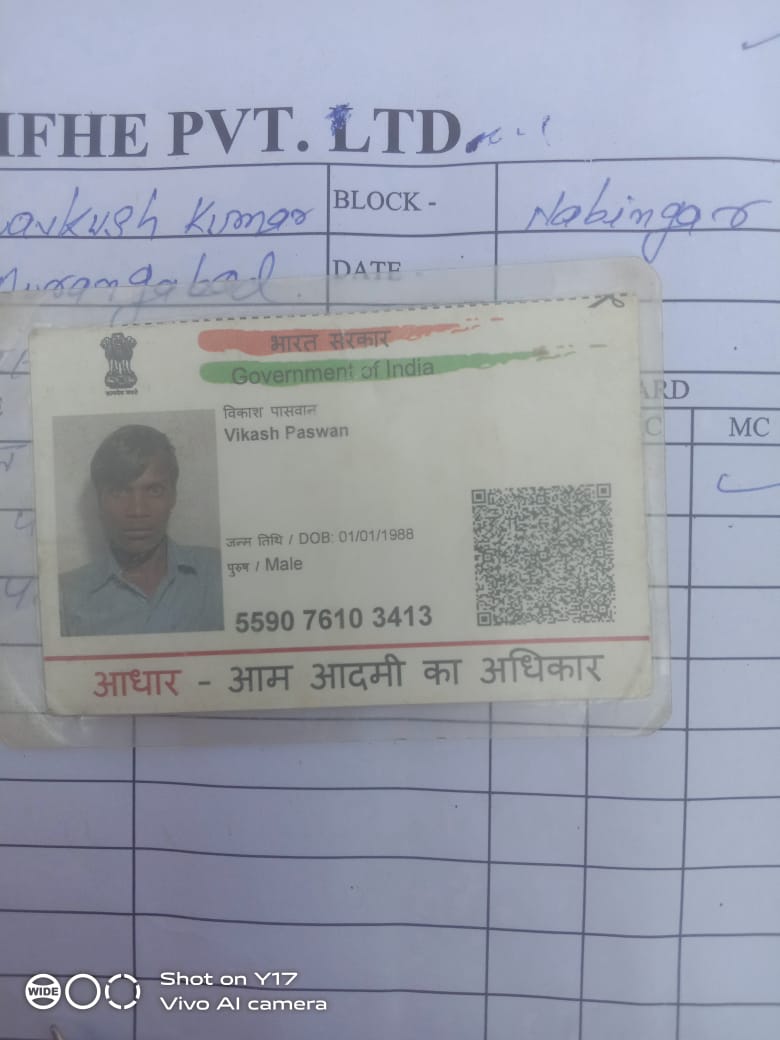 IFHE PVT. LTD.
Kumar
BLOCK -
Nabingar
DATE
भारत सरकार
Government of India
विकाश पासवान
Vikash Paswan
MC
जन्म तिथि / DOB: 01/01/1988
पुरुष / Male
5590 7610 3413
आधार - आम आदमी का अधिकार
WIDE
Shot on Y17
Vivo AI camera